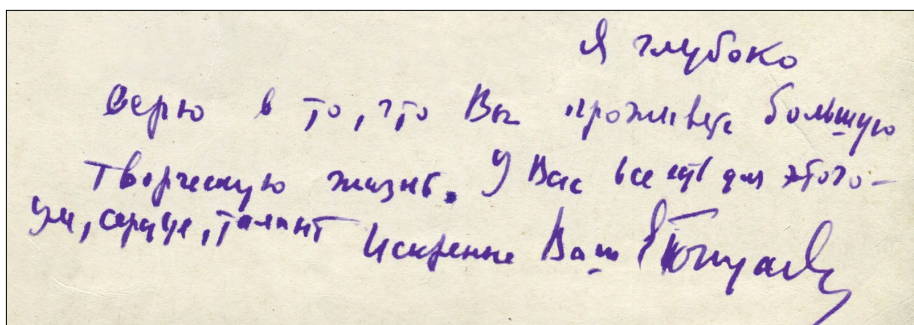 Я глубоко
верю в то, что Вы проживете большую
творческую жизнь. У Вас все есть для этого –
ум, сердце, талант Искренне Ваш